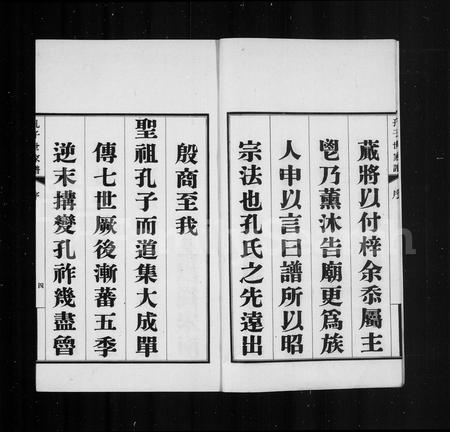 孔子世家譜 序
蕆將以付梓余忝屬主
鬯乃薰沐告廟更為族
人申以言曰譜所以昭
宗法也孔氏之先遠出
殷商至我
聖祖孔子而道集大成單
傳七世厥後漸蕃五季
逆末搆變孔祚幾盡魯
孔子世家譜 序 四